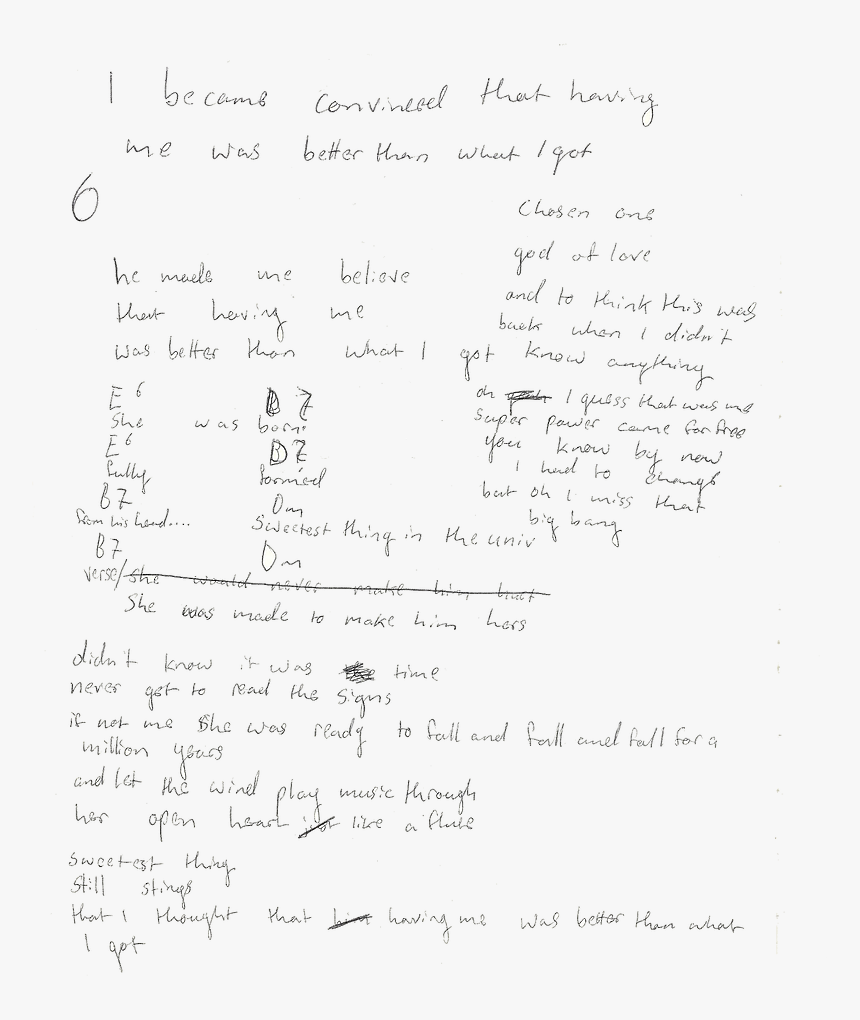 I became convinced that having
me was better than what I got
6
he made me believe
that having me
was better than what I got
E6 D7
She was born
E6 D7
fully formed
B7 Dm
from his head.... Sweetest thing in the univ
B7 Dm
verse/ she would never make him hurt
She was made to make him hers
Chosen one
god of love
and to think this was
back when I didn't
know anything
oh yeah I guess that was me
super power came for free
you know by now
I had to change
but oh I miss that
big bang
didn't know it was time
never get to read the signs
if not me she was ready to fall and fall and fall for a
million years
and let the wind play music through
her open heart just like a flute
sweetest thing
still stings
that I thought that having me was better than what
I got